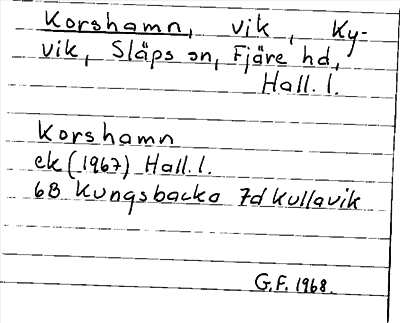 Korshamn, vik, Ky-
vik, Släps sn, Fjäre hd,
Hall. l.
Korshamn
ek (1967) Hall. l.
6B Kungsbacka 7d Kullavik
G.F. 1968.